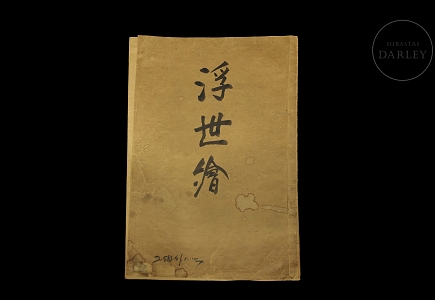 浮世繪
SUBASTAS
DARLEY